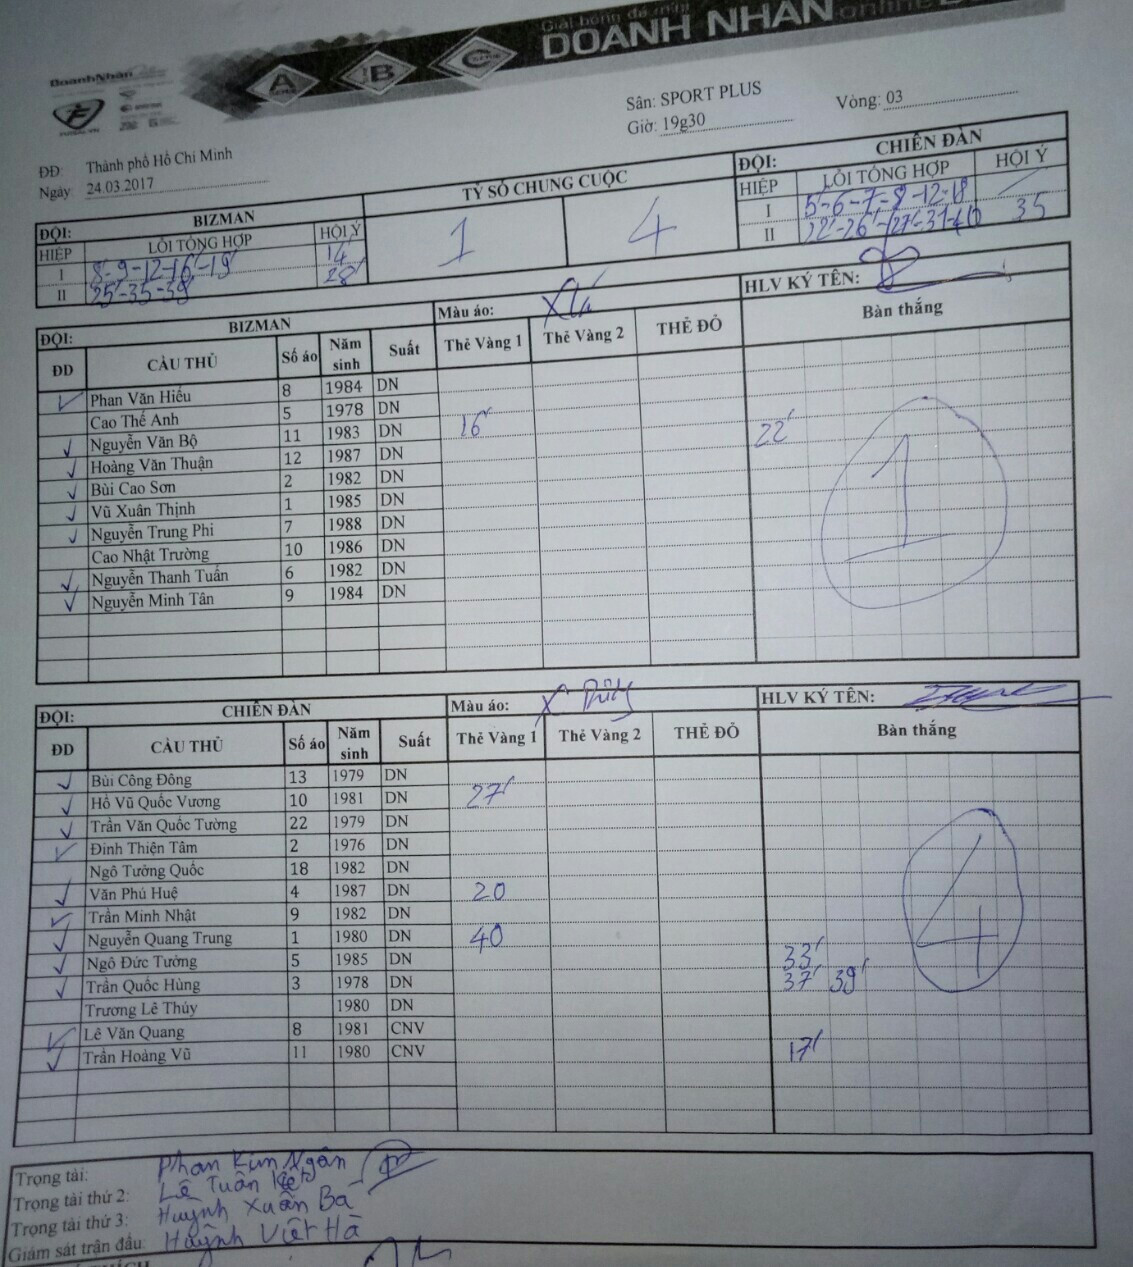 Giải bóng đá mini
DOANH NHÂN online
DoanhNhân Online
A B C
Sân: SPORT PLUS Vòng: 03
Giờ: 19g30
ĐĐ: Thành phố Hồ Chí Minh
Ngày 24.03.2017
ĐỘI: BIZMAN TỶ SỐ CHUNG CUỘC ĐỘI: CHIẾN ĐÀN
HIỆP LỖI TỔNG HỢP HỘI Ý 1 4 HIỆP LỖI TỔNG HỢP HỘI Ý
I 8-9-12-16-19' 14' I 5-6-7-8-12-18
II 25-35-39' 28' II 22'-26'-27'-31-40 35
ĐỘI: BIZMAN Màu áo: X lá HLV KÝ TÊN:
ĐD CẦU THỦ Số áo Năm sinh Suất Thẻ Vàng 1 Thẻ Vàng 2 THẺ ĐỎ Bàn thắng
Phan Văn Hiếu 8 1984 DN
Cao Thế Anh 5 1978 DN
Nguyễn Văn Bộ 11 1983 DN 16' 22'
Hoàng Văn Thuận 12 1987 DN
Bùi Cao Sơn 2 1982 DN
Vũ Xuân Thịnh 1 1985 DN
Nguyễn Trung Phi 7 1988 DN
Cao Nhật Trường 10 1986 DN
Nguyễn Thanh Tuấn 6 1982 DN
Nguyễn Minh Tân 9 1984 DN
1
ĐỘI: CHIẾN ĐÀN Màu áo: X Thủy HLV KÝ TÊN:
ĐD CẦU THỦ Số áo Năm sinh Suất Thẻ Vàng 1 Thẻ Vàng 2 THẺ ĐỎ Bàn thắng
Bùi Công Đông 13 1979 DN
Hồ Vũ Quốc Vương 10 1981 DN 27'
Trần Văn Quốc Tường 22 1979 DN
Đinh Thiện Tâm 2 1976 DN
Ngô Tưởng Quốc 18 1982 DN
Văn Phú Huệ 4 1987 DN 20
Trần Minh Nhật 9 1982 DN
Nguyễn Quang Trung 1 1980 DN 40
Ngô Đức Tưởng 5 1985 DN 33'
Trần Quốc Hùng 3 1978 DN 37' 39'
Trương Lê Thúy 1980 DN
Lê Văn Quang 8 1981 CNV
Trần Hoàng Vũ 11 1980 CNV 17'
4
Trọng tài: Phan Kim Ngân
Trọng tài thứ 2: Lê Tuấn Kiệt
Trọng tài thứ 3: Huỳnh Xuân Ba
Giám sát trận đấu: Huỳnh Việt Hà